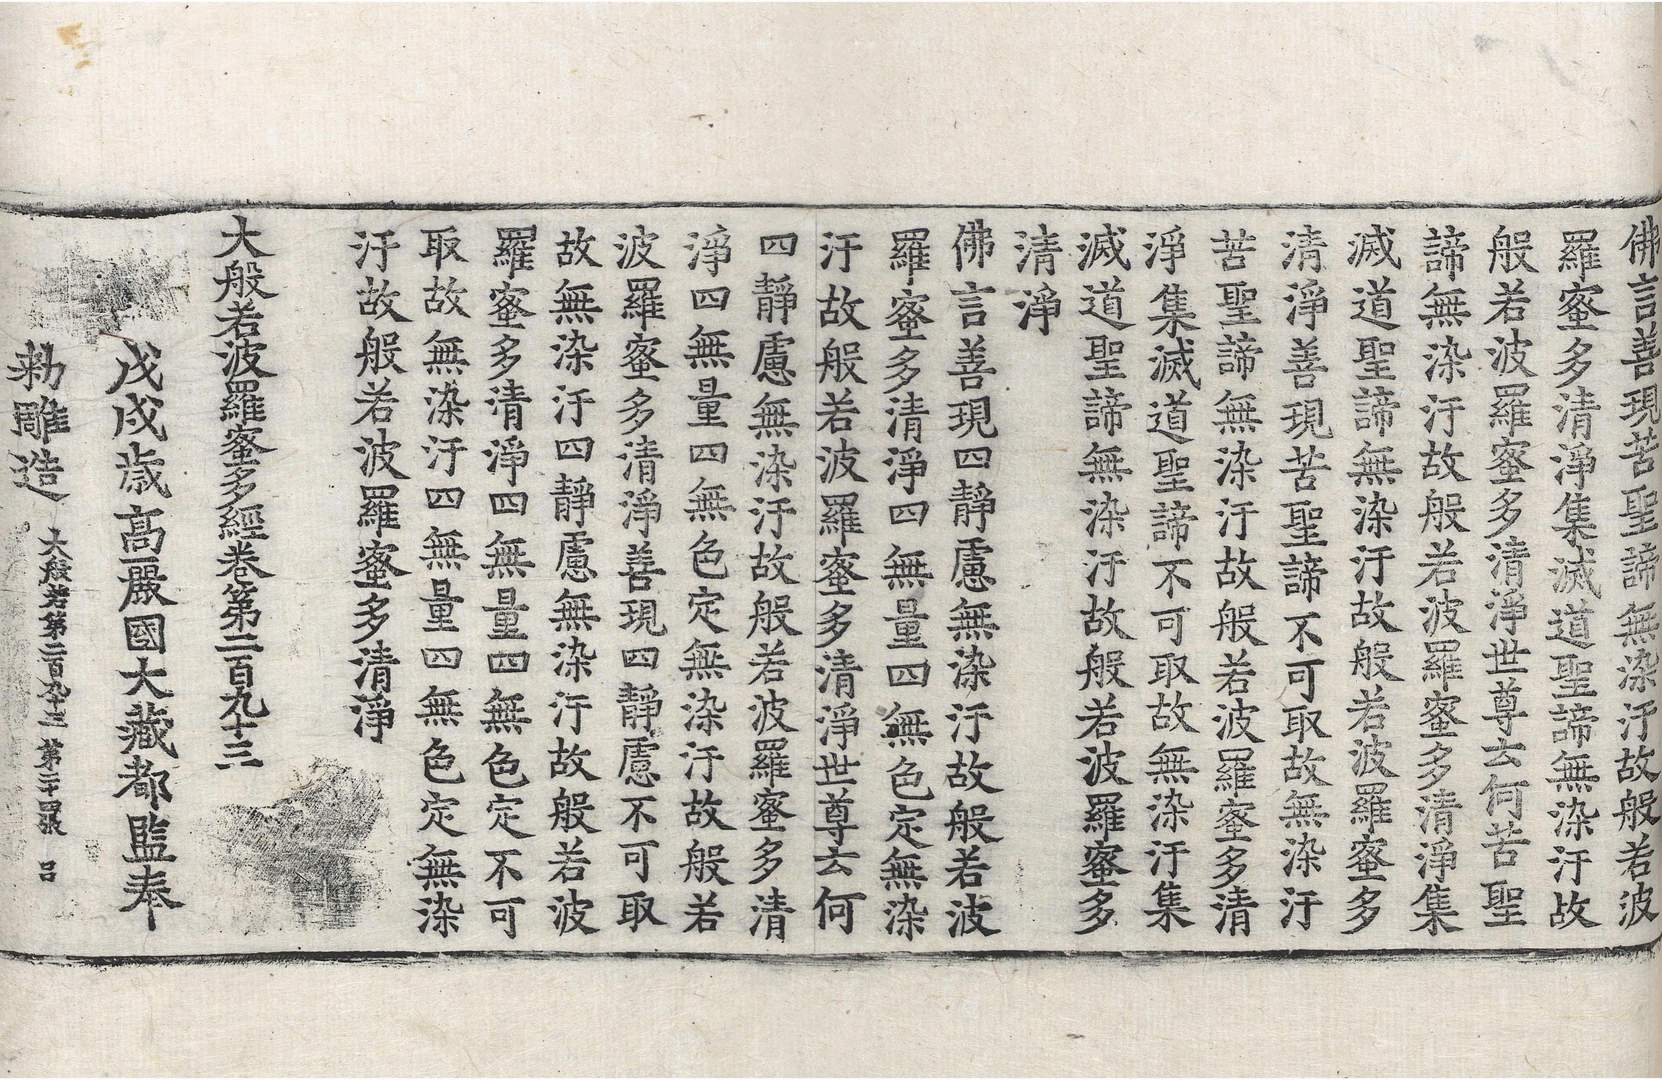 佛言善現苦聖諦無染汙故般若波
羅蜜多清淨集滅道聖諦無染汙故
般若波羅蜜多清淨世尊云何苦聖
諦無染汙故般若波羅蜜多清淨集
滅道聖諦無染汙故般若波羅蜜多
清淨善現苦聖諦不可取故無染汙
苦聖諦無染汙故般若波羅蜜多清
淨集滅道聖諦不可取故無染汙集
滅道聖諦無染汙故般若波羅蜜多
清淨
佛言善現四靜慮無染汙故般若波
羅蜜多清淨四無量四無色定無染
汙故般若波羅蜜多清淨世尊云何
四靜慮無染汙故般若波羅蜜多清
淨四無量四無色定無染汙故般若
波羅蜜多清淨善現四靜慮不可取
故無染汙四靜慮無染汙故般若波
羅蜜多清淨四無量四無色定不可
取故無染汙四無量四無色定無染
汙故般若波羅蜜多清淨
大般若波羅蜜多經卷第二百九十三
戊戌歲高麗國大藏都監奉
勅雕造
大般若第二百九十三 第二十四張 呂